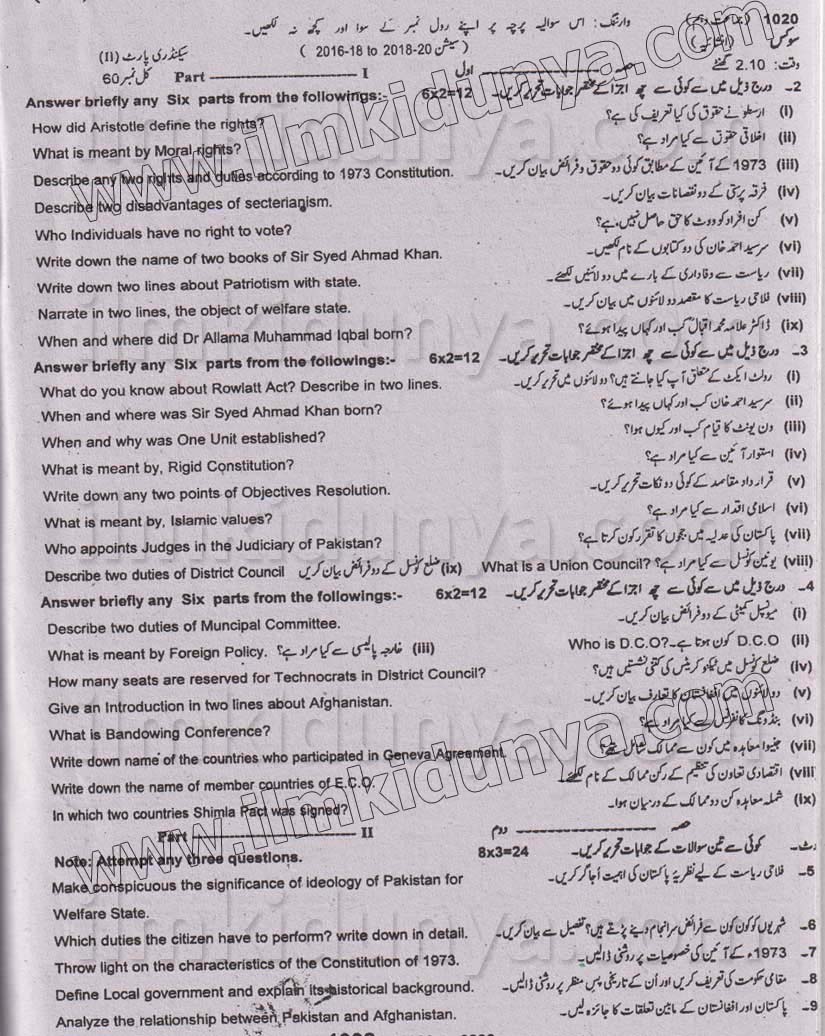 1020 (جماعت دہم) وارننگ: اس سوالیہ پرچہ پر اپنے رول نمبر کے سوا اور کچھ نہ لکھیں۔
سوکس (انشائیہ) (سیشن 20-2018 to 2016-18) سیکنڈری پارٹ (II)
وقت: 2.10 گھنٹے حصہ اول Part I کل نمبر 60
Answer briefly any Six parts from the followings:- 6x2=12 2۔ درج ذیل میں سے کوئی سے چھ اجزا کے مختصر جوابات تحریر کریں۔
How did Aristotle define the rights? (i) ارسطو نے حقوق کی کیا تعریف کی ہے؟
What is meant by Moral rights? (ii) اخلاقی حقوق سے کیا مراد ہے؟
Describe any two rights and duties according to 1973 Constitution. (iii) 1973 کے آئین کے مطابق کوئی دو حقوق و فرائض بیان کریں۔
Describe two disadvantages of secterianism. (iv) فرقہ پرستی کے دو نقصانات بیان کریں۔
Who Individuals have no right to vote? (v) کن افراد کو ووٹ کا حق حاصل نہیں ہے؟
Write down the name of two books of Sir Syed Ahmad Khan. (vi) سرسید احمد خان کی دو کتابوں کے نام لکھیں۔
Write down two lines about Patriotism with state. (vii) ریاست سے وفاداری کے بارے میں دو لائنیں لکھئے۔
Narrate in two lines, the object of welfare state. (viii) فلاحی ریاست کا مقصد دو لائنوں میں بیان کریں۔
When and where did Dr Allama Muhammad Iqbal born? (ix) ڈاکٹر علامہ محمد اقبال کب اور کہاں پیدا ہوئے؟
Answer briefly any Six parts from the followings:- 6x2=12 3۔ درج ذیل میں سے کوئی سے چھ اجزا کے مختصر جوابات تحریر کریں۔
What do you know about Rowlatt Act? Describe in two lines. (i) رولٹ ایکٹ کے متعلق آپ کیا جانتے ہیں؟ دو لائنوں میں تحریر کریں۔
When and where was Sir Syed Ahmad Khan born? (ii) سرسید احمد خان کب اور کہاں پیدا ہوئے؟
When and why was One Unit established? (iii) ون یونٹ کا قیام کب اور کیوں ہوا؟
What is meant by, Rigid Constitution? (iv) استوار آئین سے کیا مراد ہے؟
Write down any two points of Objectives Resolution. (v) قرارداد مقاصد کے کوئی دو نکات تحریر کریں۔
What is meant by, Islamic values? (vi) اسلامی اقدار سے کیا مراد ہے؟
Who appoints Judges in the Judiciary of Pakistan? (vii) پاکستان کی عدلیہ میں ججوں کا تقرر کون کرتا ہے؟
Describe two duties of District Council (ix) ضلع کونسل کے دو فرائض بیان کریں What is a Union Council? (viii) یونین کونسل سے کیا مراد ہے؟
Answer briefly any Six parts from the followings:- 6x2=12 4۔ درج ذیل میں سے کوئی سے چھ اجزا کے مختصر جوابات تحریر کریں۔
Describe two duties of Muncipal Committee. (i) میونسپل کمیٹی کے دو فرائض بیان کریں۔
What is meant by Foreign Policy. (iii) خارجہ پالیسی سے کیا مراد ہے؟ Who is D.C.O? (ii) D.C.O کون ہوتا ہے۔
How many seats are reserved for Technocrats in District Council? (iv) ضلع کونسل میں ٹیکنوکریٹس کی کتنی نشستیں ہیں؟
Give an Introduction in two lines about Afghanistan. (v) دو لائنوں میں افغانستان کا تعارف بیان کریں۔
What is Bandowing Conference? (vi) بنڈونگ کانفرنس سے کیا مراد ہے؟
Write down name of the countries who participated in Geneva Agreement. (vii) جنیوا معاہدہ میں کون سے ممالک شامل تھے؟
Write down the name of member countries of E.C.O. (viii) اقتصادی تعاون کی تنظیم کے رکن ممالک کے نام لکھئے۔
In which two countries Shimla Pact was signed? (ix) شملہ معاہدہ کن دو ممالک کے درمیان ہوا۔
Part II حصہ دوم
Note: Attempt any three questions. 8x3=24 کوئی سے تین سوالات کے جوابات تحریر کریں۔
Make conspicuous the significance of ideology of Pakistan for 5۔ فلاحی ریاست کے لیے نظریہ پاکستان کی اہمیت اُجاگر کریں۔
Welfare State.
Which duties the citizen have to perform? write down in detail. 6۔ شہریوں کو کون کون سے فرائض سرانجام دینے پڑتے ہیں؟ تفصیل سے بیان کریں۔
Throw light on the characteristics of the Constitution of 1973. 7۔ 1973ء کے آئین کی خصوصیات پر روشنی ڈالیں۔
Define Local government and explain its historical background. 8۔ مقامی حکومت کی تعریف کریں اور اُن کے تاریخی پس منظر پر روشنی ڈالیں۔
Analyze the relationship between Pakistan and Afghanistan. 9۔ پاکستان اور افغانستان کے مابین تعلقات کا جائزہ لیں۔
www.ilmkidunya.com
www.ilmkidunya.com
ilmkidunya.com
ilmkidunya.com
ilmkidunya.com
ilmkidunya.com
ilmkidunya.com